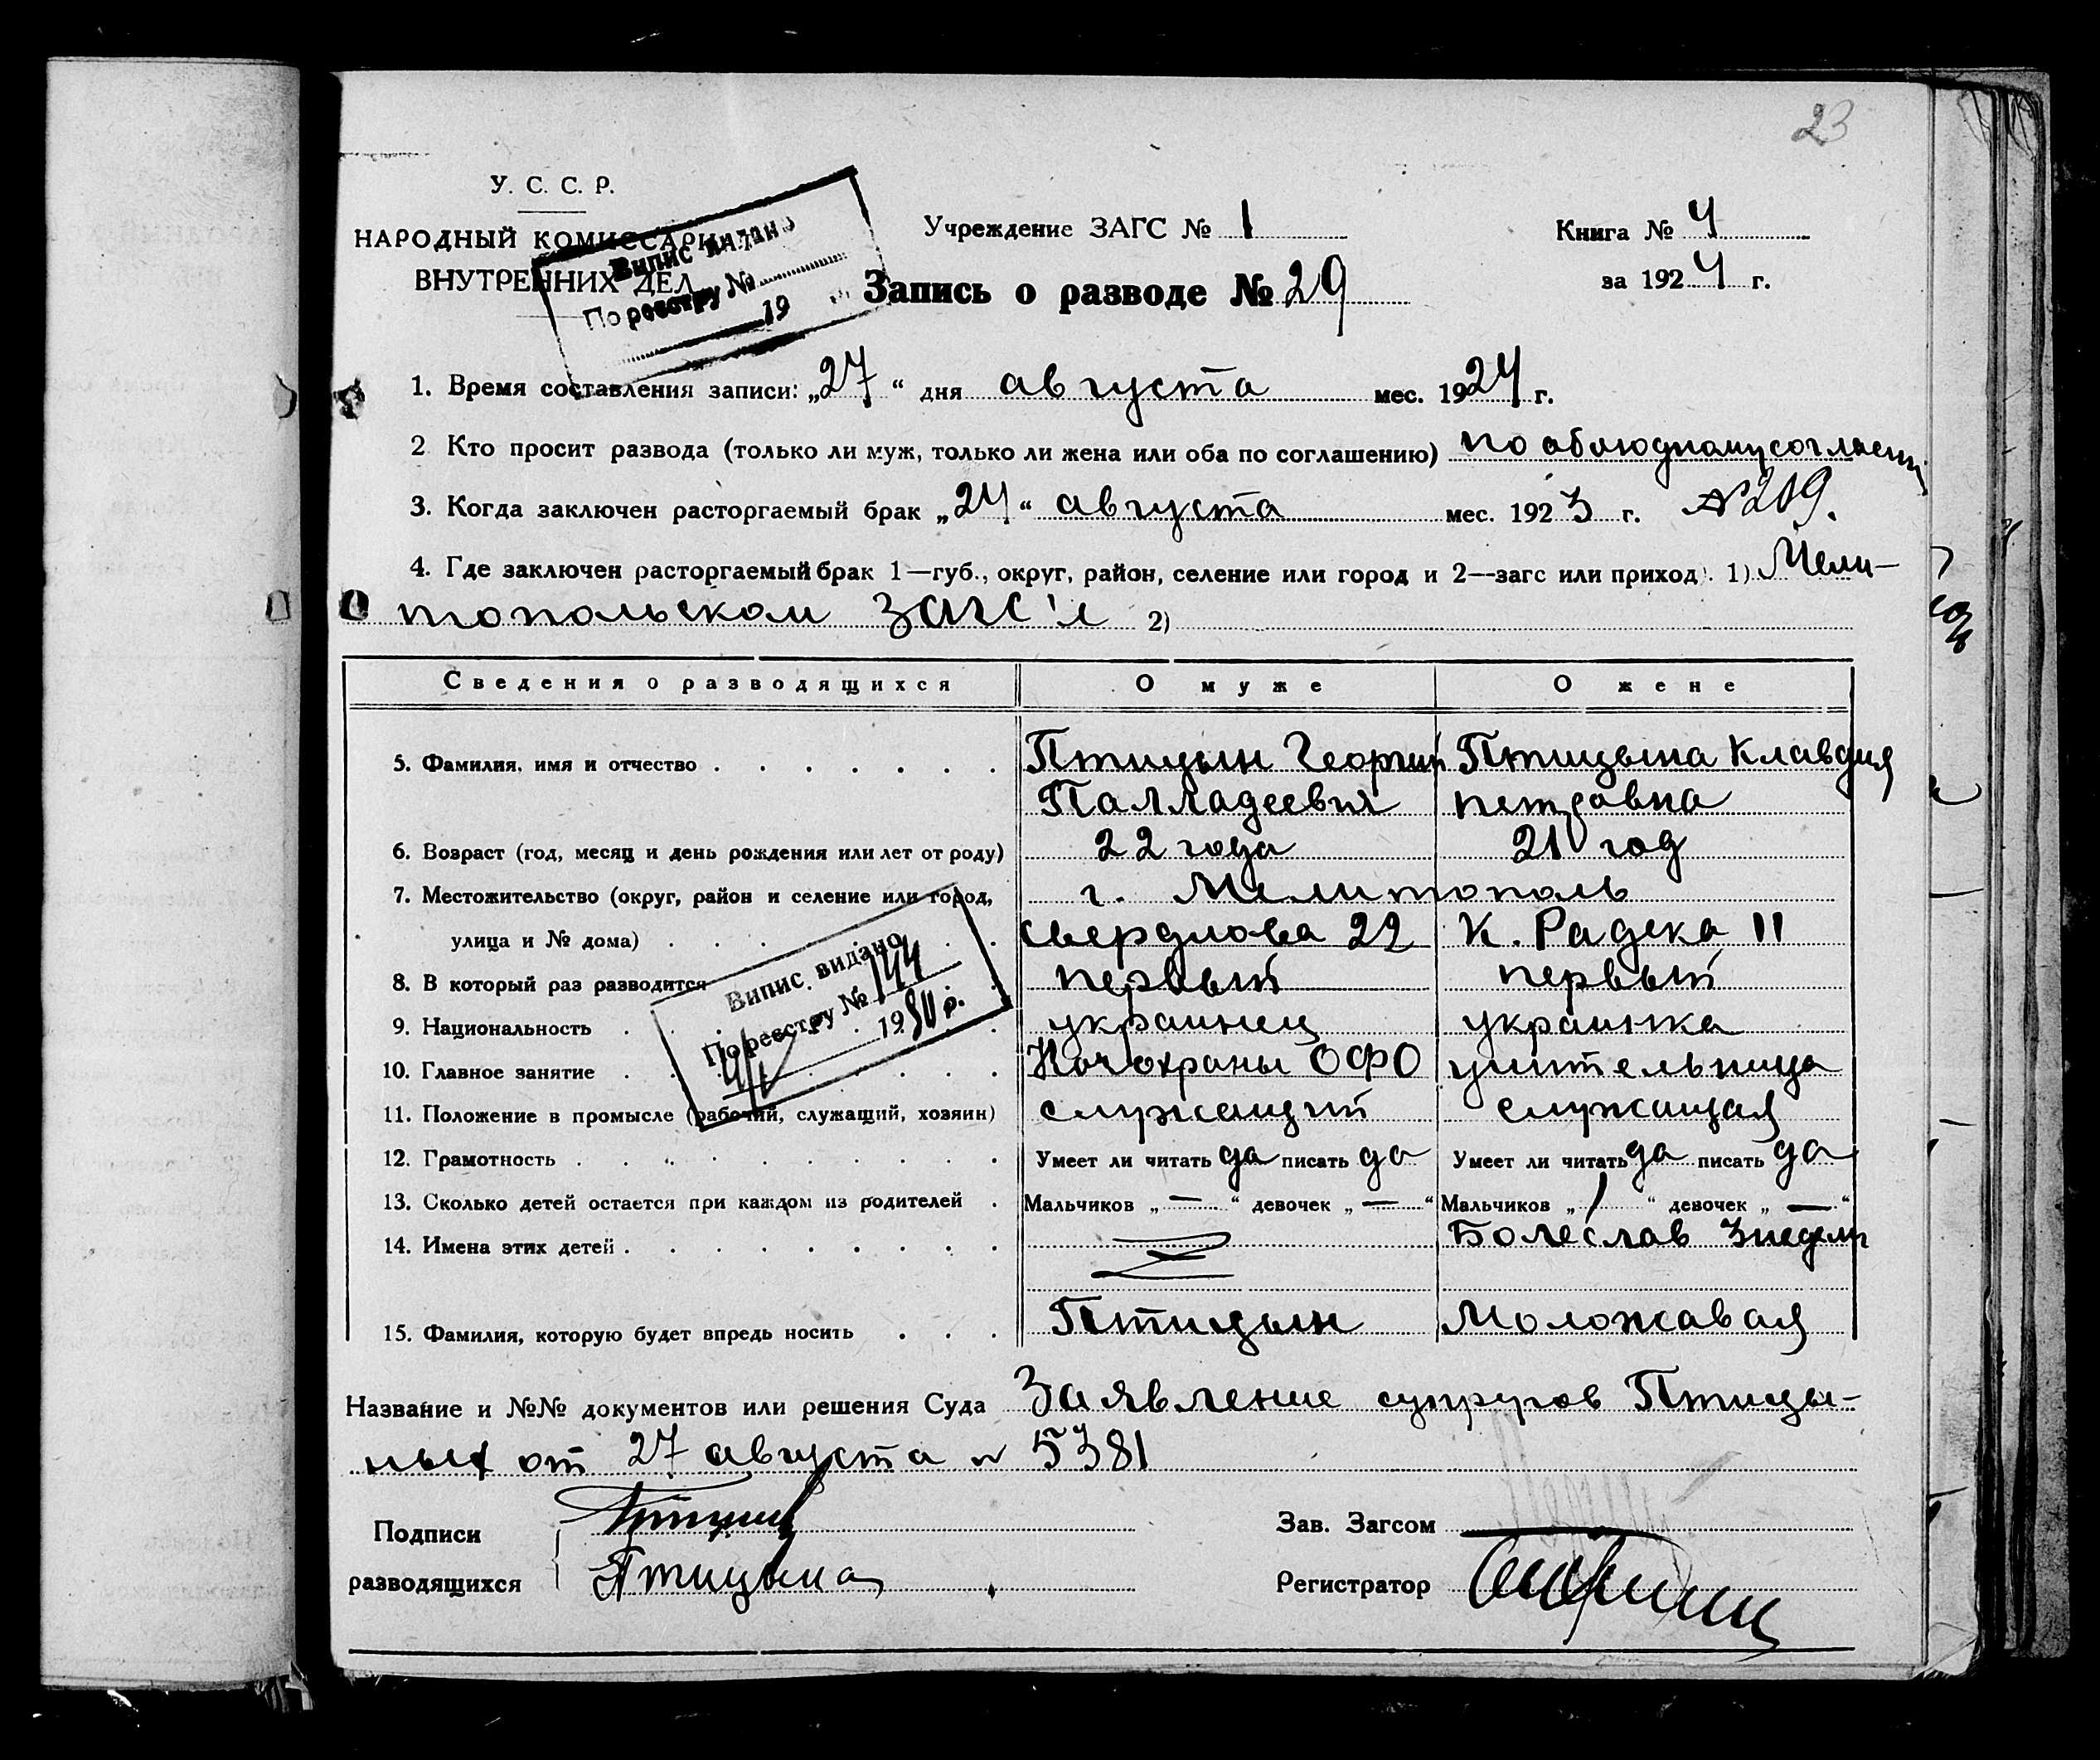 23
У. С. С. Р.
НАРОДНЫЙ КОМИССАРИАТ
ВНУТРЕННИХ ДЕЛ
Випис видано
По реестру №
19
Учреждение ЗАГС № 1
Книга № 4
за 1924 г.
Запись о разводе № 29
1. Время составления записи: „27“ дня августа мес. 1924 г.
2 Кто просит развода (только ли муж, только ли жена или оба по соглашению) по обоюдному согласию
3. Когда заключен расторгаемый брак „24“ августа мес. 1923 г. №209.
4. Где заключен расторгаемый брак 1—губ., округ, район, селение или город и 2—загс или приход). 1) Мели-
топольском загс'е 2)
Сведения о разводящихся О муже О жене
5. Фамилия, имя и отчество Птицын Георгий Птицына Клавдия
Палладеевич петровна
6. Возраст (год, месяц и день рождения или лет от роду) 22 года 21 год
7. Местожительство (округ, район и селение или город, г. Мелитополь
улица и № дома) свердлова 22 К. Радека 11
8. В который раз разводится первый первый
Випис видано
По реестру № 144
1930 р.
9. Национальность украинец украинка
10. Главное занятие Нач охраны ОФО учительница
11. Положение в промысле (рабочий, служащий, хозяин) служащий служащая
12. Грамотность Умеет ли читать да писать да Умеет ли читать да писать да
13. Сколько детей остается при каждом из родителей Мальчиков „—“ девочек „—“ Мальчиков „1“ девочек „—“
14. Имена этих детей Болеслав 3 недели
15. Фамилия, которую будет впредь носить Птицын Моложавая
Название и №№ документов или решения Суда Заявление супругов Птицы-
ных от 27 августа № 5381
Подписи
разводящихся
Птицын
Птицына
Зав. Загсом
Регистратор